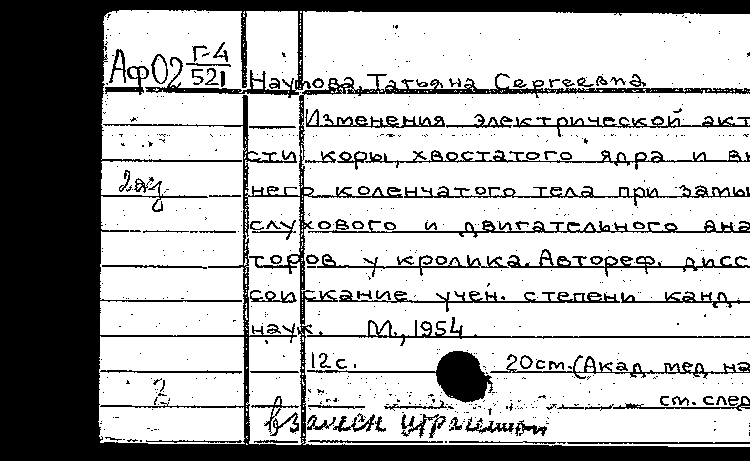 Аф02 Г-4
521
Наумова, Татьяна Сергеевна
Изменения электрической акт
сти коры, хвостатого ядра и вн
2аз
него коленчатого тела при замы
слухового и двигательного ана
торов у кролика. Автореф. дисс
соискание учен. степени канд.
наук. М., 1954.
12с. 20см. (Акад. мед. на
2
см. след
взамен утраченной